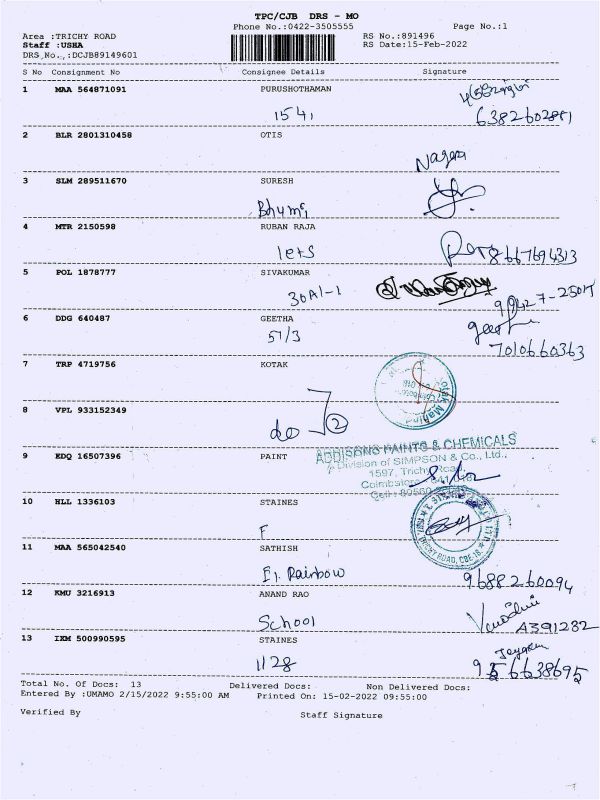 TPC/CJB DRS - MO
Phone No.:0422-3505555 Page No.:1
Area :TRICHY ROAD RS No.:891496
Staff :USHA RS Date:15-Feb-2022
DRS No.,:DCJB89149601
S No Consignment No Consignee Details Signature
1 MAA 564871091 PURUSHOTHAMAN
1541 6382602881
2 BLR 2801310458 OTIS
Nagera
3 SLM 289511670 SURESH
Bhumi
4 MTR 2150598 RUBAN RAJA
lets 8667694313
5 POL 1878777 SIVAKUMAR
30A1-1
6 DDG 640487 GEETHA
57/3 geetha
7010660363
7 TRP 4719756 KOTAK
8 VPL 933152349
do 2
9 EDQ 16507396 PAINT
ADDISONS PAINTS & CHEMICALS
A Division of SIMPSON & Co., Ltd.,
1597, Trichy Road,
10 HLL 1336103 STAINES
F
TRICHY ROAD, CBE-18
11 MAA 565042540 SATHISH
E1. Rainbow 9688260094
12 KMU 3216913 ANAND RAO
School A391282
13 IXM 500990595 STAINES
1128
Total No. Of Docs: 13 Delivered Docs: Non Delivered Docs:
Entered By :UMAMO 2/15/2022 9:55:00 AM Printed On: 15-02-2022 09:55:00
Verified By Staff Signature